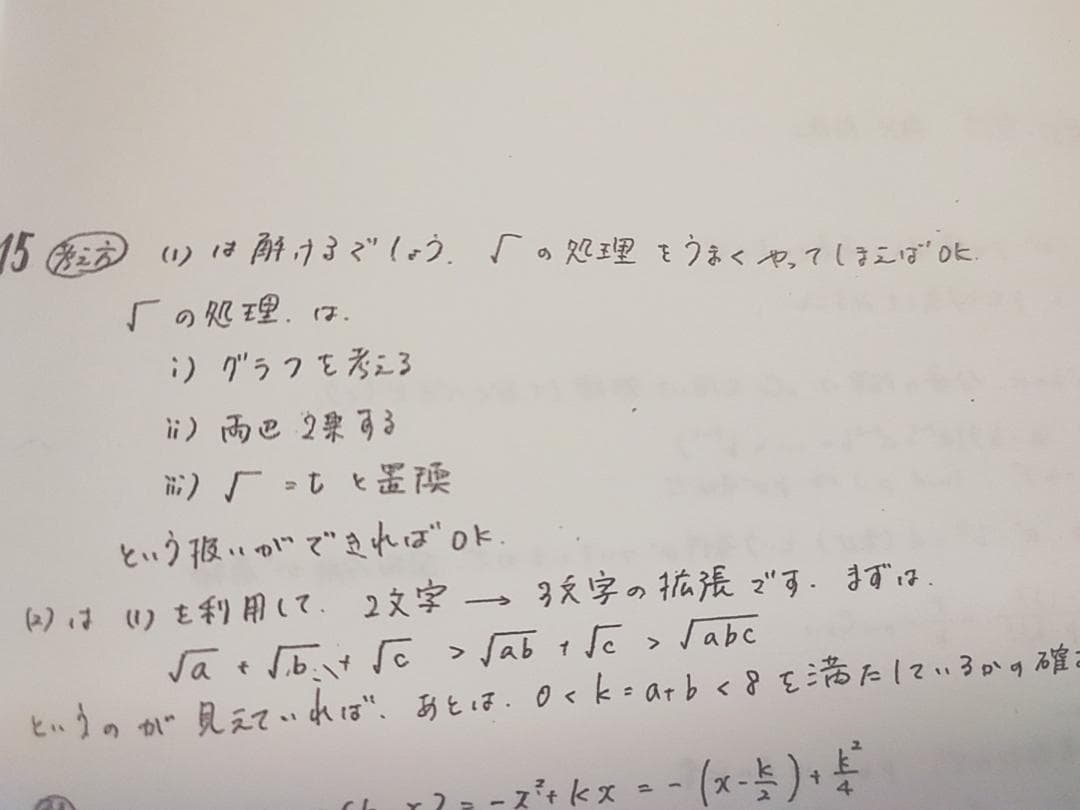 15 考え方 (1)は解けるでしょう. √ の処理をうまくやってしまえばOK.
√ の処理.は.
i) グラフを考える
ii) 両辺2乗する
iii) √ = t と置換
という扱いができればOK.
(2)は (1)を利用して. 2文字 → 3文字の拡張です. まずは.
√a + √b + √c > √ab + √c > √abc
というのが見えていれば. あとは. 0 < k = a+b < 8 を満たしているかの確
x) = -x²+kx = -(x-k/2)+k²/4